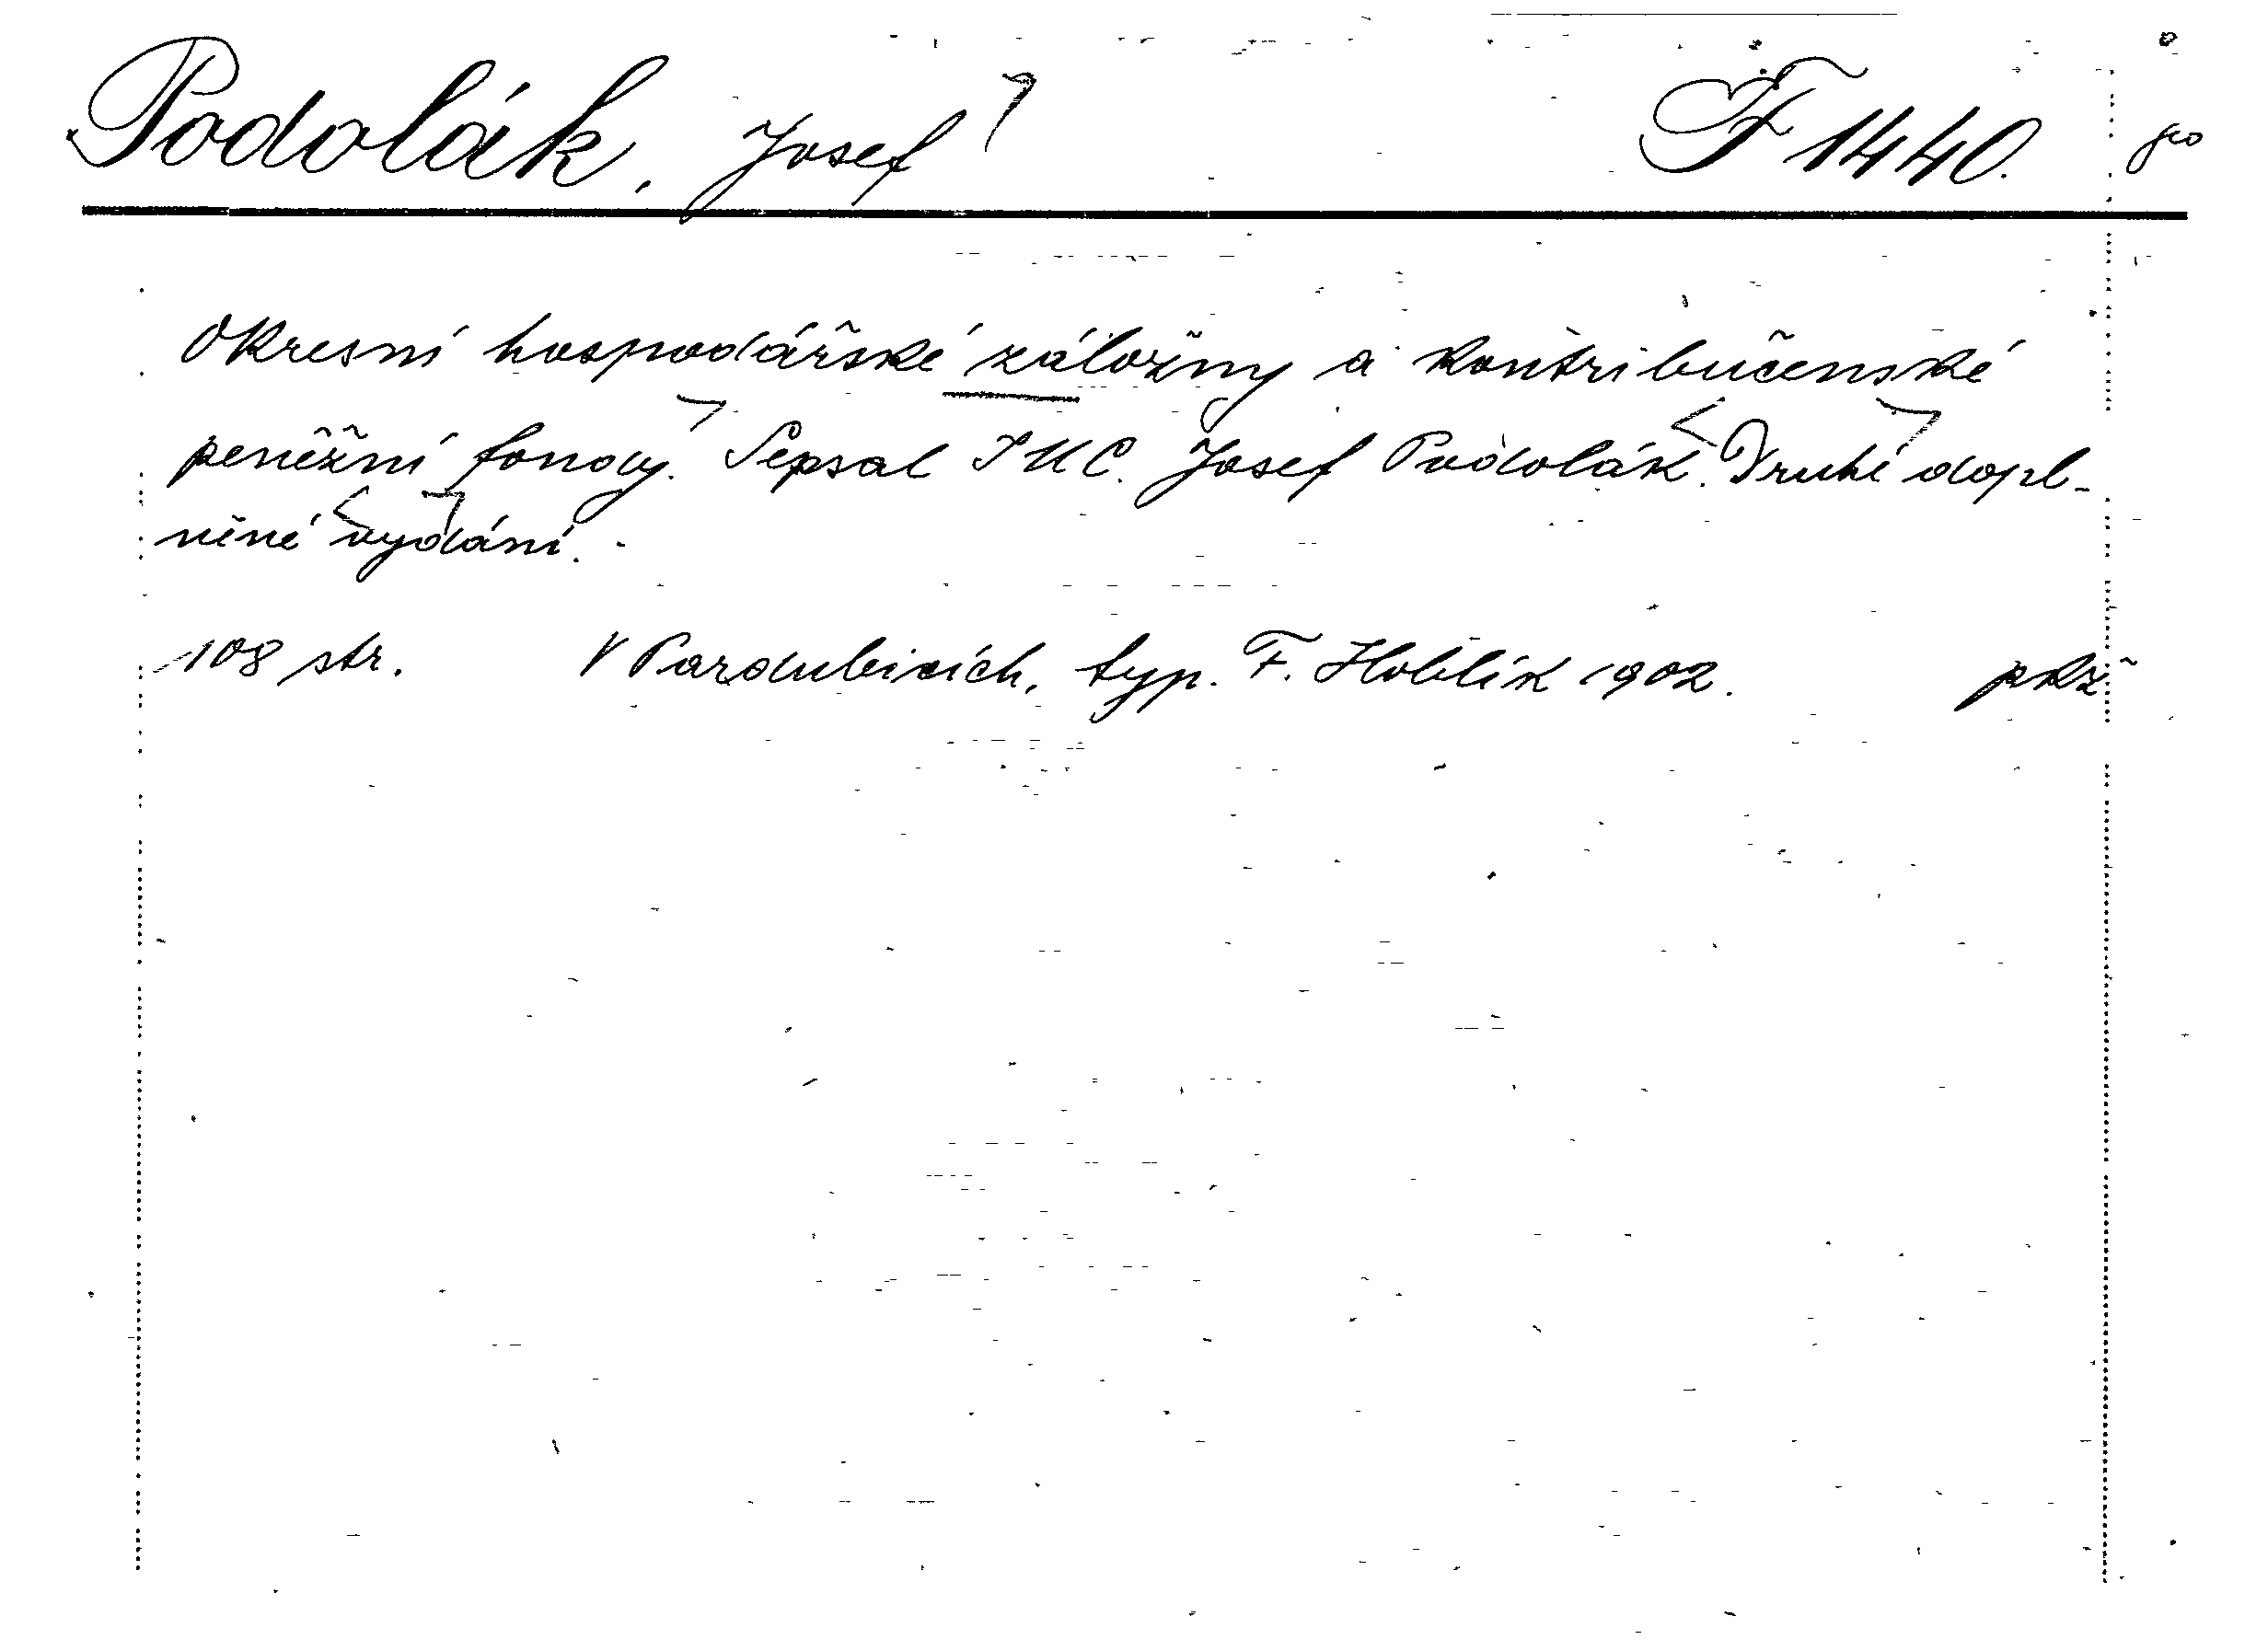 Podolák, Josef F 1440.
Okresní hospodářské záložny a kontribučenské
peněžní fondy. Sepsal IUC. Josef Podolák. Druhé dopl-
něné vydání.
108 str. V Pardubicích, typ. F. Hoblík 1902. pkž